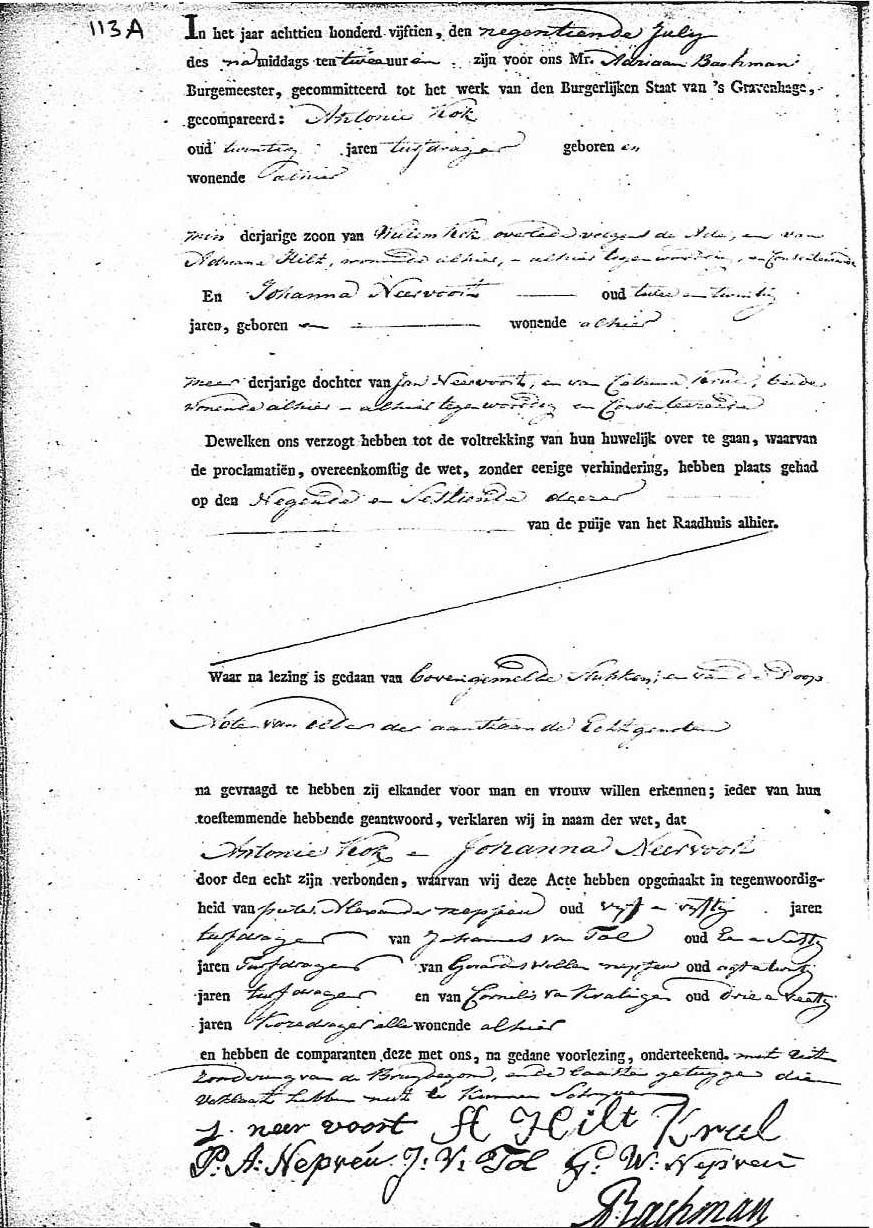 113A
In het jaar achttien honderd vijftien, den negentiende July
des namiddags ten twee uuren zijn vóór ons Mr. Adriaan Bachman
Burgemeester, gecommitteerd tot het werk van den Burgerlijken Staat van 's Gravenhage,
gecompareerd: Antonie Kok
oud twintig jaren turfdrager geboren en
wonende alhier
min derjarige zoon van Willem Kok overlede volgens de Acte, en van
Adriana Hilt, wonende alhier, alhier tegenwoordig, en Consenteerende
En Johanna Neervoort oud twee en twintig
jaren, geboren en wonende alhier
meer derjarige dochter van Jan Neervoort, en van Catrina Krul, beide
wonende alhier alhier tegenwoordig en Consenteerende
Dewelken ons verzogt hebben tot de voltrekking van hun huwelijk over te gaan, waarvan
de proclamatiën, overeenkomstig de wet, zonder eenige verhindering, hebben plaats gehad
op den Negende en Sestiende deezer
van de puije van het Raadhuis alhier.
Waar na lezing is gedaan van bovengemelde stukken, en van de Doop
Acten van beide der aanstaande Echtgenoten
na gevraagd te hebben zij elkander voor man en vrouw willen erkennen; ieder van hun
toestemmende hebbende geantwoord, verklaren wij in naam der wet, dat
Antonie Kok en Johanna Neervoort
door den echt zijn verbonden, waarvan wij deze Acte hebben opgemaakt in tegenwoordig-
heid van pieter Alexander nepveu oud vijf en vijftig jaren
turfdrager van Johannes van Tol oud Een en
jaren Turfdrager van Gerardus Willem nepveu oud agt en twintig
jaren turfdrager en van Cornelis van Kralingen oud drie en veertig
jaren Korendrager alle wonende alhier
en hebben de comparanten deze met ons, na gedane voorlezing, onderteekend. met uit
zondering van de Bruydegom, en de laatste getuygen die
verklaart hebben niet te kunnen Schryven
J. neer voort A Hilt Krul
P: A: Nepveu J: V: Tol G: W: Nepveu
Bachman